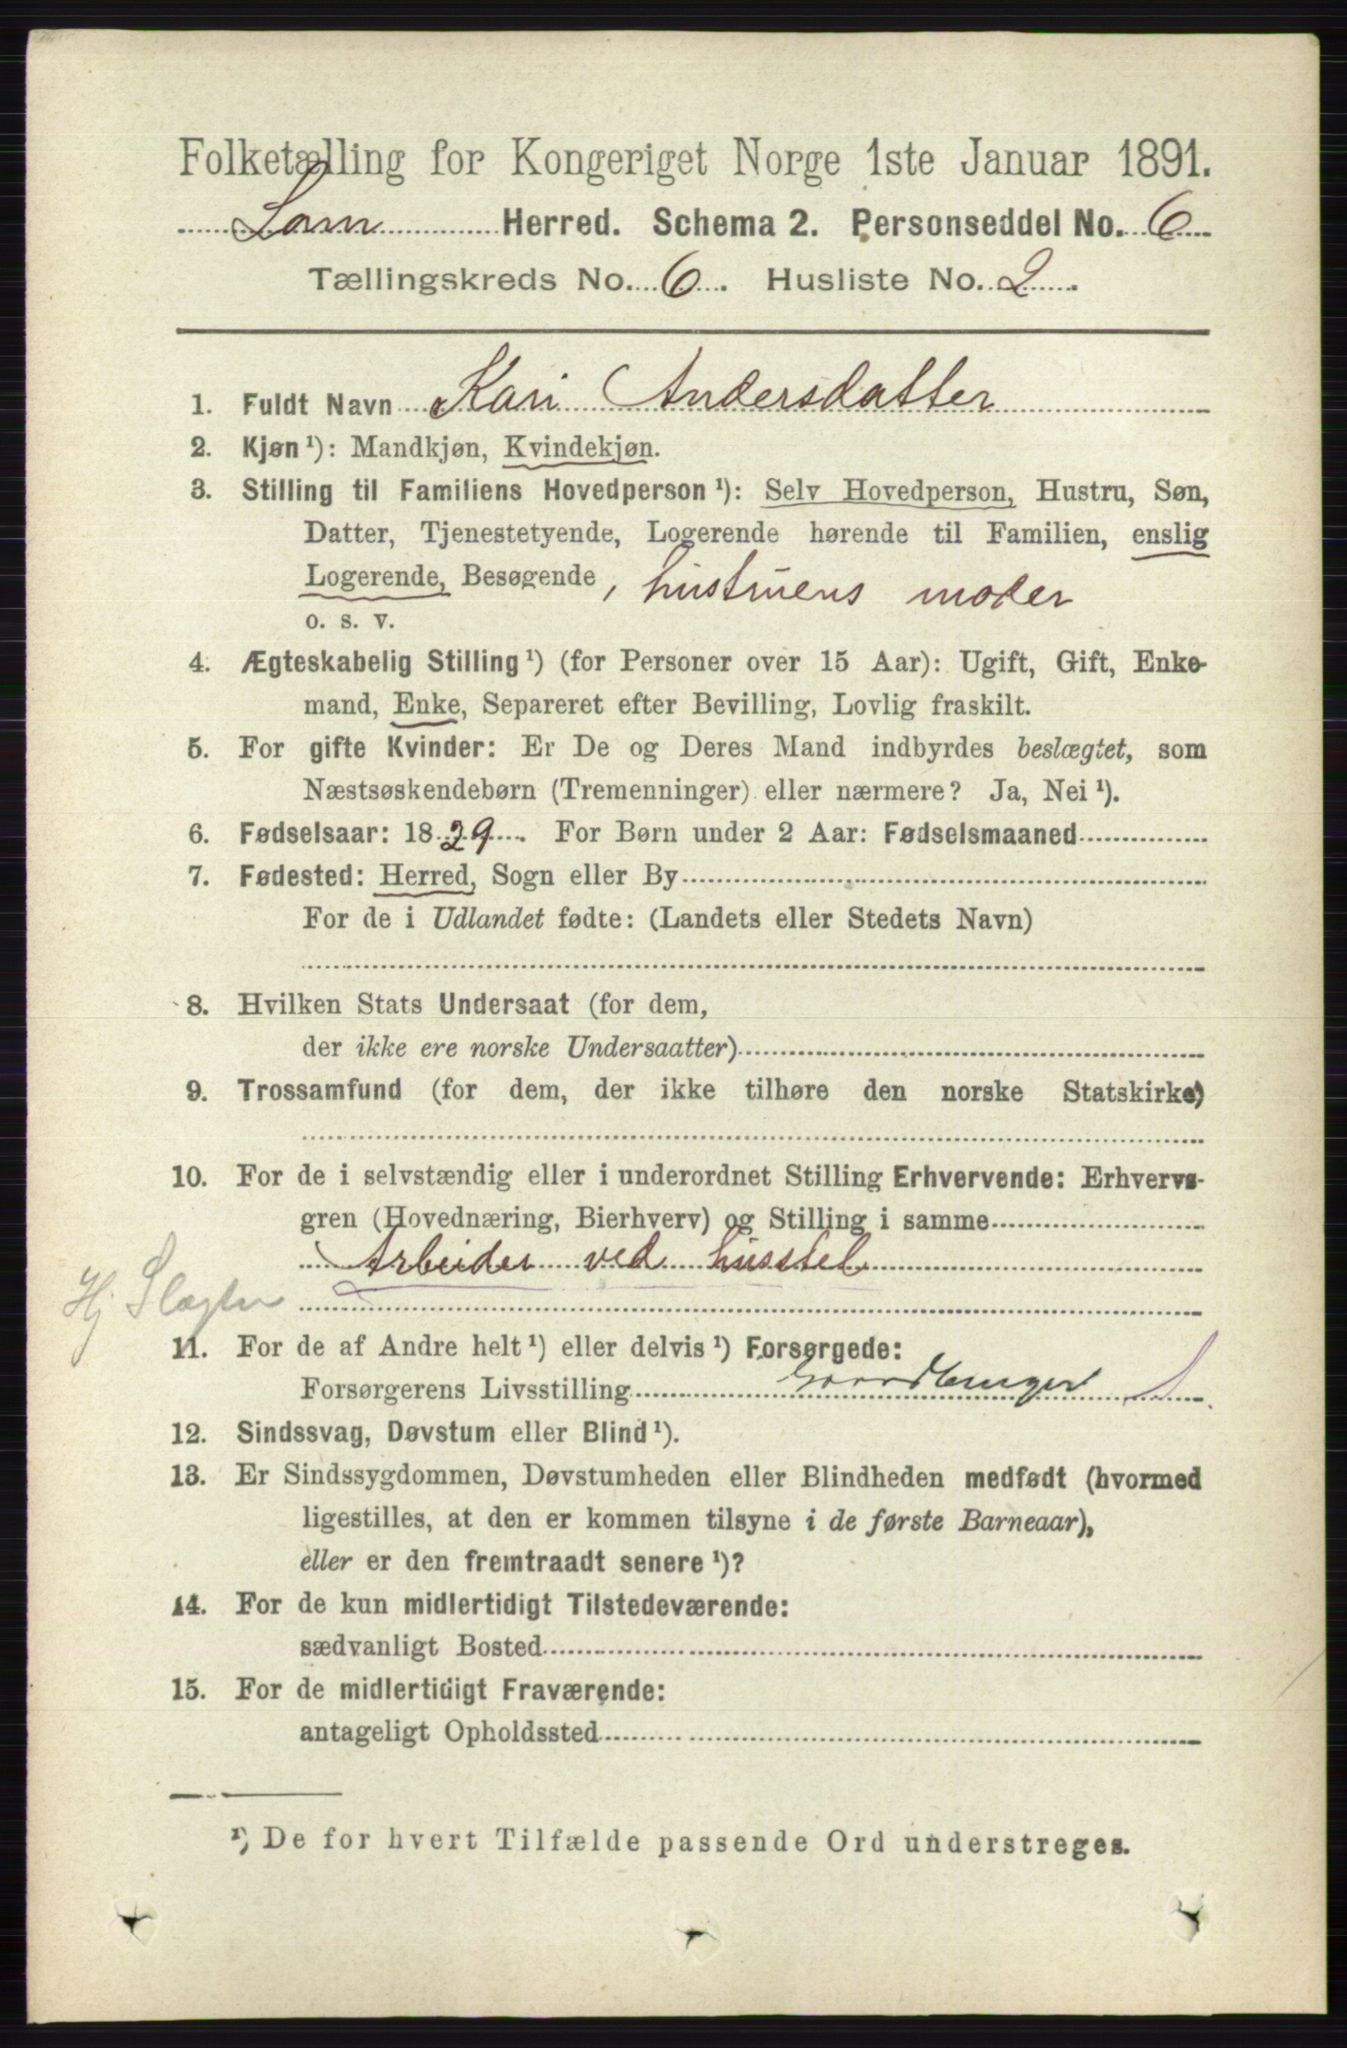 Folketælling for Kongeriget Norge 1ste Januar 1891.
Lom Herred. Schema 2. Personseddel No. 6
Tællingskreds No. 6. Husliste No. 2.
1. Fuldt Navn Kari Andersdatter
2. Kjøn ¹): Mandkjøn, Kvindekjøn.
3. Stilling til Familiens Hovedperson ¹): Selv Hovedperson, Hustru, Søn,
Datter, Tjenestetyende, Logerende hørende til Familien, enslig
Logerende, Besøgende, hustruens moder
o. s. v.
4. Ægteskabelig Stilling ¹) (for Personer over 15 Aar): Ugift, Gift, Enke-
mand, Enke, Separeret efter Bevilling, Lovlig fraskilt.
5. For gifte Kvinder: Er De og Deres Mand indbyrdes beslægtet, som
Næstsøskendebørn (Tremenninger) eller nærmere? Ja, Nei ¹).
6. Fødselsaar: 1829. For Børn under 2 Aar: Fødselsmaaned
7. Fødested: Herred, Sogn eller By
For de i Udlandet fødte: (Landets eller Stedets Navn)
8. Hvilken Stats Undersaat (for dem,
der ikke ere norske Undersaatter)
9. Trossamfund (for dem, der ikke tilhøre den norske Statskirke)
10. For de i selvstændig eller i underordnet Stilling Erhvervende: Erhvervs-
gren (Hovednæring, Bierhverv) og Stilling i samme
Arbeider ved husstel
Hj Slægtn
11. For de af Andre helt ¹) eller delvis ¹) Forsørgede:
Forsørgerens Livsstilling Gaardbruger
12. Sindssvag, Døvstum eller Blind ¹).
13. Er Sindssygdommen, Døvstumheden eller Blindheden medfødt (hvormed
ligestilles, at den er kommen tilsyne i de første Barneaar),
eller er den fremtraadt senere ¹)?
14. For de kun midlertidigt Tilstedeværende:
sædvanligt Bosted
15. For de midlertidigt Fraværende:
antageligt Opholdssted
¹) De for hvert Tilfælde passende Ord understreges.